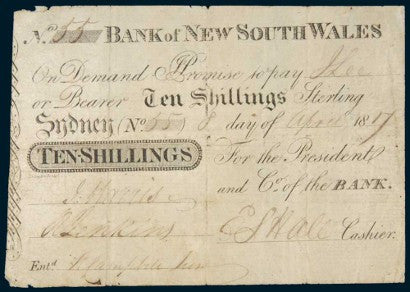 No. 55 BANK of NEW SOUTH WALES
On Demand I Promise to pay
or Bearer Ten Shillings Sterling
Sydney (No. 55) 8 day of April 1817
TEN-SHILLINGS For the President
and Co. of the BANK.
R Jenkins E S Hall Cashier.
Entd. J. Campbell Junr